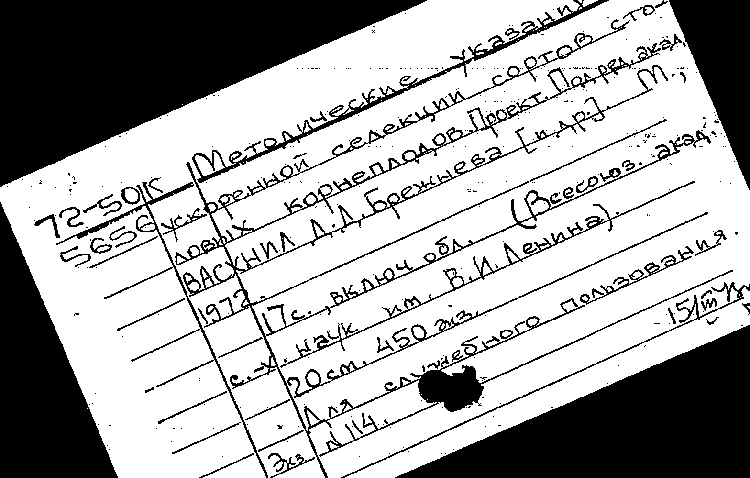 72-50К
5656
Методические указания
ускоренной селекции сортов сто-
ловых корнеплодов. Проект. Под ред. акад.
ВАСХНИЛ Д.Д. Брежнева [и др.]. М.,
1972.
17 с., включ обл. (Всесоюз. акад.
с.-х. наук им. В.И. Ленина).
20 см. 450 экз.
Для служебного пользования.
Экз №114.